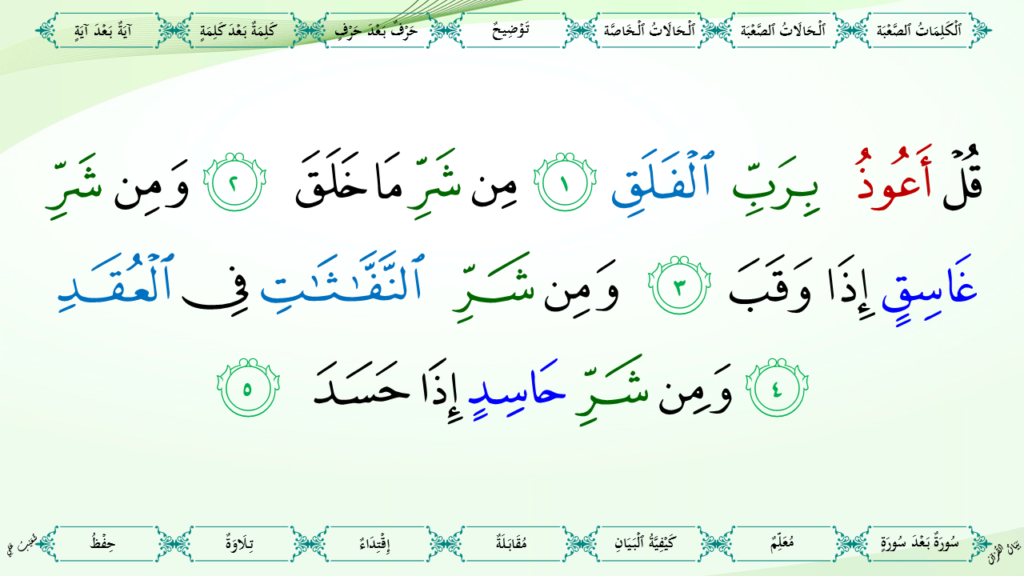 ٱلْكَلِمَاتُ ٱلصَّعْبَة ٱلْحَالَاتُ ٱلصَّعْبَة ٱلْحَالَاتُ ٱلْخَاصَّة تَوْضِيحٌ حَرْفٌ بَعْدَ حَرْفٍ كَلِمَةٌ بَعْدَ كَلِمَةٍ آيَةٌ بَعْدَ آيَةٍ
قُلْ أَعُوذُ بِرَبِّ ٱلْفَلَقِ ١ مِن شَرِّ مَا خَلَقَ ٢ وَمِن شَرِّ
غَاسِقٍ إِذَا وَقَبَ ٣ وَمِن شَرِّ ٱلنَّفَّـٰثَـٰتِ فِى ٱلْعُقَدِ
٤ وَمِن شَرِّ حَاسِدٍ إِذَا حَسَدَ ٥
سُورَةٌ بَعْدَ سُورَةٍ مُعَلِّمٌ كَيْفِيَّةُ ٱلْبَيَانِ مُقَابَلَةٌ إِقْتِدَاءٌ تِلَاوَةٌ حِفْظُ